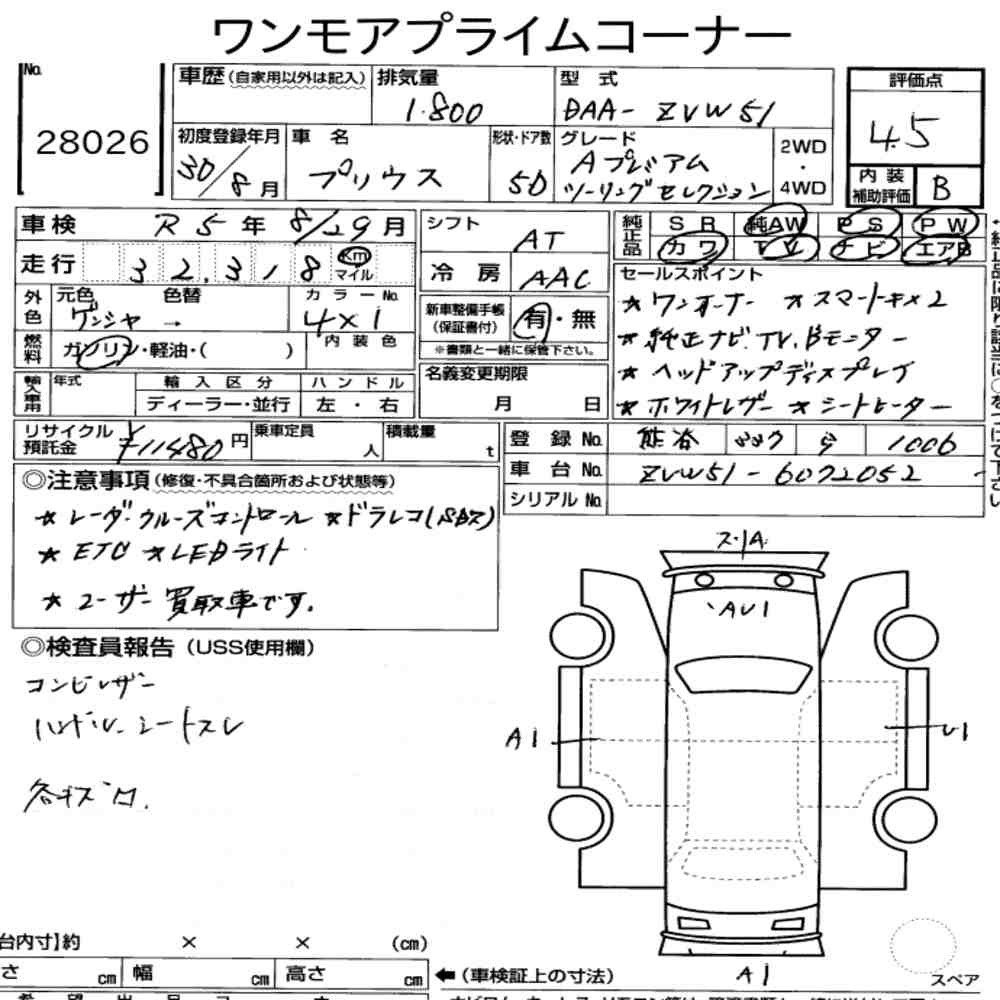 ワンモアプライムコーナー
No.
28026
車歴(自家用以外は記入)
排気量
1.800
型 式
DAA-ZVW51
評価点
4.5
初度登録年月
30/8月
車 名
プリウス
形状・ドア数
5D
グレード
Aプレミアム
ツーリングセレクション
2WD
・
4WD
内 装
補助評価
B
車検
R5年8/29月
シフト
AT
純正品
SR
純AW
PS
PW
カワ
TV
ナビ
エアB
走行
32.318
Km
マイル
冷 房
AAC
セールスポイント
★ワンオーナー ★スマートキー×2
★純正ナビ.TV.Bモニター
★ヘッドアップディスプレイ
★ホワイトレザー ★シートヒーター
外色
元色
色替
ゲンシャ→
カラーNo.
4X1
新車整備手帳
(保証書付)
有・無
※書類と一緒に保管下さい。
燃料
ガソリン・軽油・( )
内装色
輸入車用
年式
輸入区分
ディーラー・並行
ハンドル
左・右
名義変更期限
月 日
リサイクル
預託金
¥11480円
乗車定員
人
積載量
t
登録No.
熊谷
1006
車台No.
ZVW51-6072052
シリアルNo.
◎注意事項(修復・不具合箇所および状態等)
★レーダークルーズコントロール ★ドラレコ(SDナシ)
★ETC ★LEDライト
★ユーザー買取車です.
◎検査員報告(USS使用欄)
コンビレザー
ハンドル.シートスレ
各キズ凹.
ス.1A
AU1
A1
U1
A1
スペア
台内寸】約 × × (cm)
さ cm 幅 cm 高さ cm
←(車検証上の寸法)